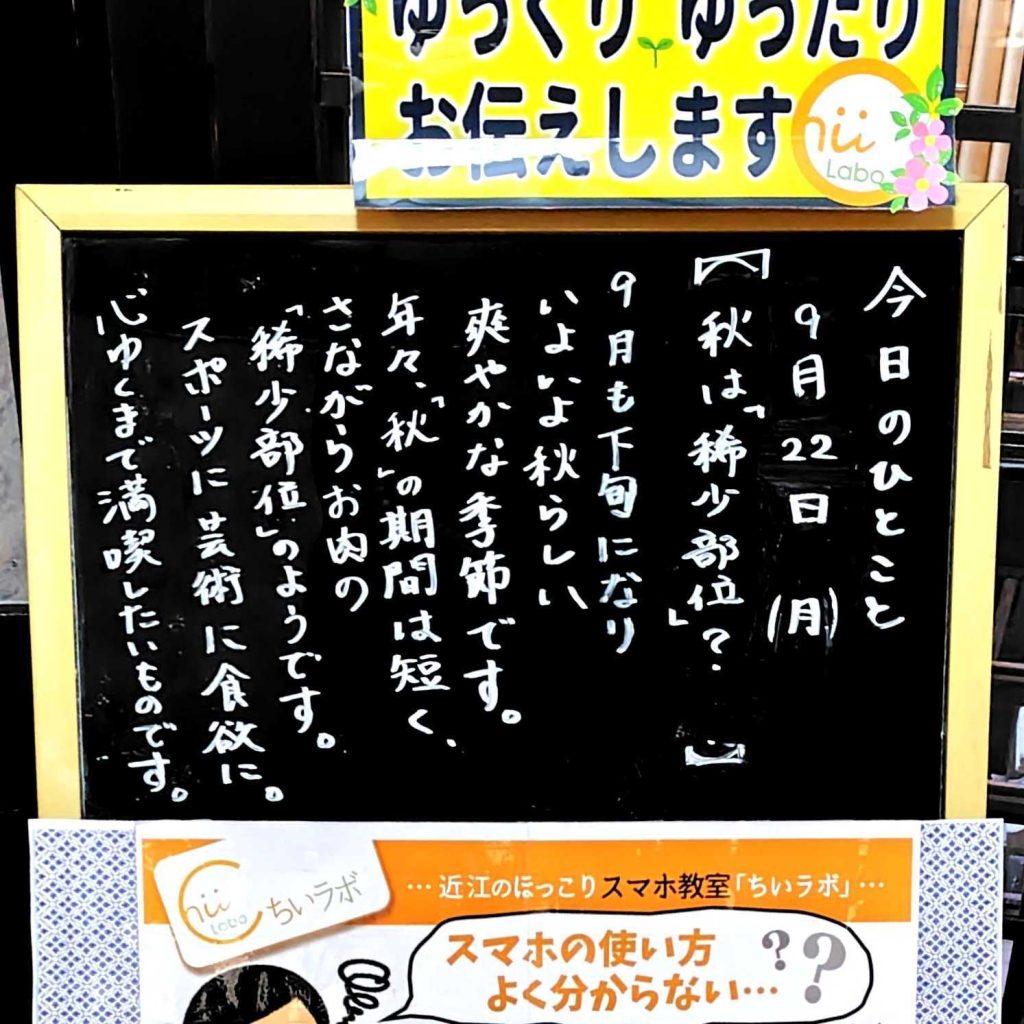 ゆっくり ゆったり
お伝えします
Chii
Labo
今日のひとこと
9月22日(月)
【秋は「稀少部位?」】
9月も下旬になり
いよいよ秋らしい
爽やかな季節です。
年々、「秋」の期間は短く、
さながらお肉の
「稀少部位」のようです。
スポーツに芸術に食欲に。
心ゆくまで満喫したいものです。
Chii
Labo
ちいラボ
…近江のほっこりスマホ教室「ちいラボ」…
スマホの使い方
よく分からない…
??